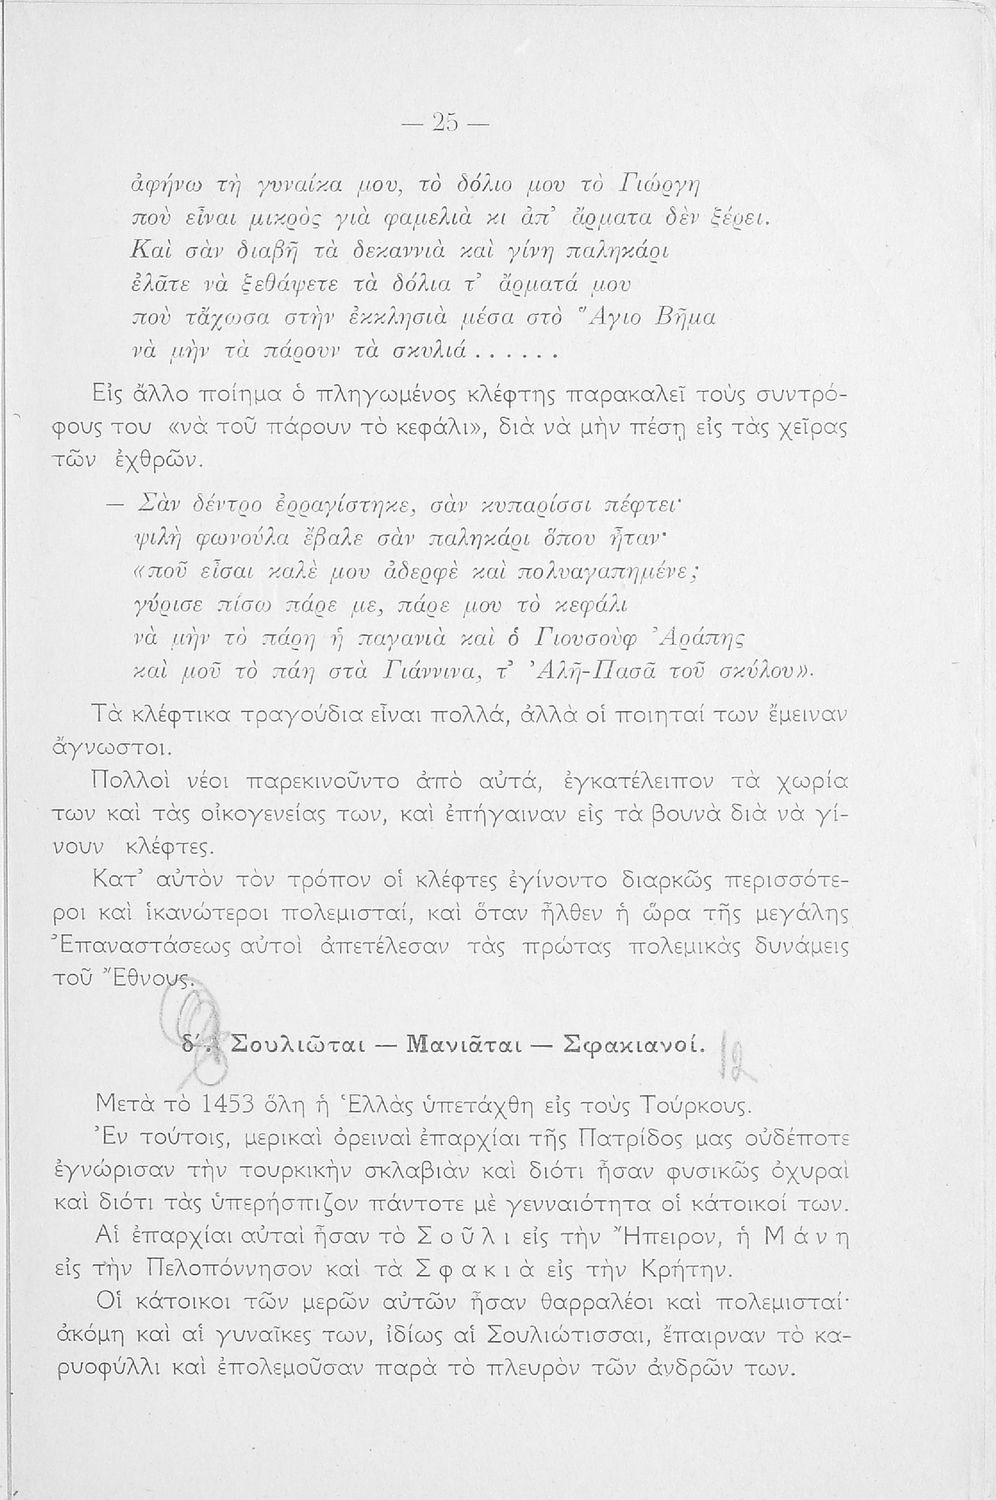 — 25 —
ἀφήνω τὴ γυναίκα μου, τὸ δόλιο μου τὸ Γιώργη
ποὺ εἶναι μικρὸς γιὰ φαμελιὰ κι ἀπ' ἄρματα δὲν ξέρει.
Καὶ σὰν διαβῆ τὰ δεκαννιὰ καὶ γίνη παληκάρι
ἐλᾶτε νὰ ξεθάψετε τὰ δόλια τ' ἄρματά μου
ποὺ τἄχωσα στὴν ἐκκλησιὰ μέσα στὸ Ἅγιο Βῆμα
νὰ μὴν τὰ πάρουν τὰ σκυλιά . . . . . .
Εἰς ἄλλο ποίημα ὁ πληγωμένος κλέφτης παρακαλεῖ τοὺς συντρό-
φους του «νὰ τοῦ πάρουν τὸ κεφάλι», διὰ νὰ μὴν πέσῃ εἰς τὰς χεῖρας
τῶν ἐχθρῶν.
— Σὰν δέντρο ἐρραγίστηκε, σὰν κυπαρίσσι πέφτει·
ψιλὴ φωνούλα ἔβαλε σὰν παληκάρι ὅπου ἦταν·
«ποῦ εἶσαι καλὲ μου ἀδερφὲ καὶ πολυαγαπημένε;
γύρισε πίσω πάρε με, πάρε μου τὸ κεφάλι
νὰ μὴν τὸ πάρη ἡ παγανιὰ καὶ ὁ Γιουσοὺφ Ἀράπης
καὶ μοῦ τὸ πάη στὰ Γιάννινα, τ' Ἀλῆ-Πασᾶ τοῦ σκύλου».
Τὰ κλέφτικα τραγούδια εἶναι πολλά, ἀλλὰ οἱ ποιηταί των ἔμειναν
ἄγνωστοι.
Πολλοὶ νέοι παρεκινοῦντο ἀπὸ αὐτά, ἐγκατέλειπον τὰ χωρία
των καὶ τὰς οἰκογενείας των, καὶ ἐπήγαιναν εἰς τὰ βουνὰ διὰ νὰ γί-
νουν κλέφτες.
Κατ' αὐτὸν τὸν τρόπον οἱ κλέφτες ἐγίνοντο διαρκῶς περισσότε-
ροι καὶ ἱκανώτεροι πολεμισταί, καὶ ὅταν ἦλθεν ἡ ὥρα τῆς μεγάλης
Ἐπαναστάσεως αὐτοὶ ἀπετέλεσαν τὰς πρώτας πολεμικὰς δυνάμεις
τοῦ Ἔθνους.
δ'. Σουλιῶται — Μανιᾶται — Σφακιανοί. 12
Μετὰ τὸ 1453 ὅλη ἡ Ἑλλὰς ὑπετάχθη εἰς τοὺς Τούρκους.
Ἐν τούτοις, μερικαὶ ὀρειναὶ ἐπαρχίαι τῆς Πατρίδος μας οὐδέποτε
ἐγνώρισαν τὴν τουρκικὴν σκλαβιὰν καὶ διότι ἦσαν φυσικῶς ὀχυραὶ
καὶ διότι τὰς ὑπερήσπιζον πάντοτε μὲ γενναιότητα οἱ κάτοικοί των.
Αἱ ἐπαρχίαι αὐταὶ ἦσαν τὸ Σ ο ῦ λ ι εἰς τὴν Ἤπειρον, ἡ Μ ά ν η
εἰς τὴν Πελοπόννησον καὶ τὰ Σ φ α κ ι ὰ εἰς τὴν Κρήτην.
Οἱ κάτοικοι τῶν μερῶν αὐτῶν ἦσαν θαρραλέοι καὶ πολεμισταί·
ἀκόμη καὶ αἱ γυναῖκες των, ἰδίως αἱ Σουλιώτισσαι, ἔπαιρναν τὸ κα-
ρυοφύλλι καὶ ἐπολεμοῦσαν παρὰ τὸ πλευρὸν τῶν ἀνδρῶν των.